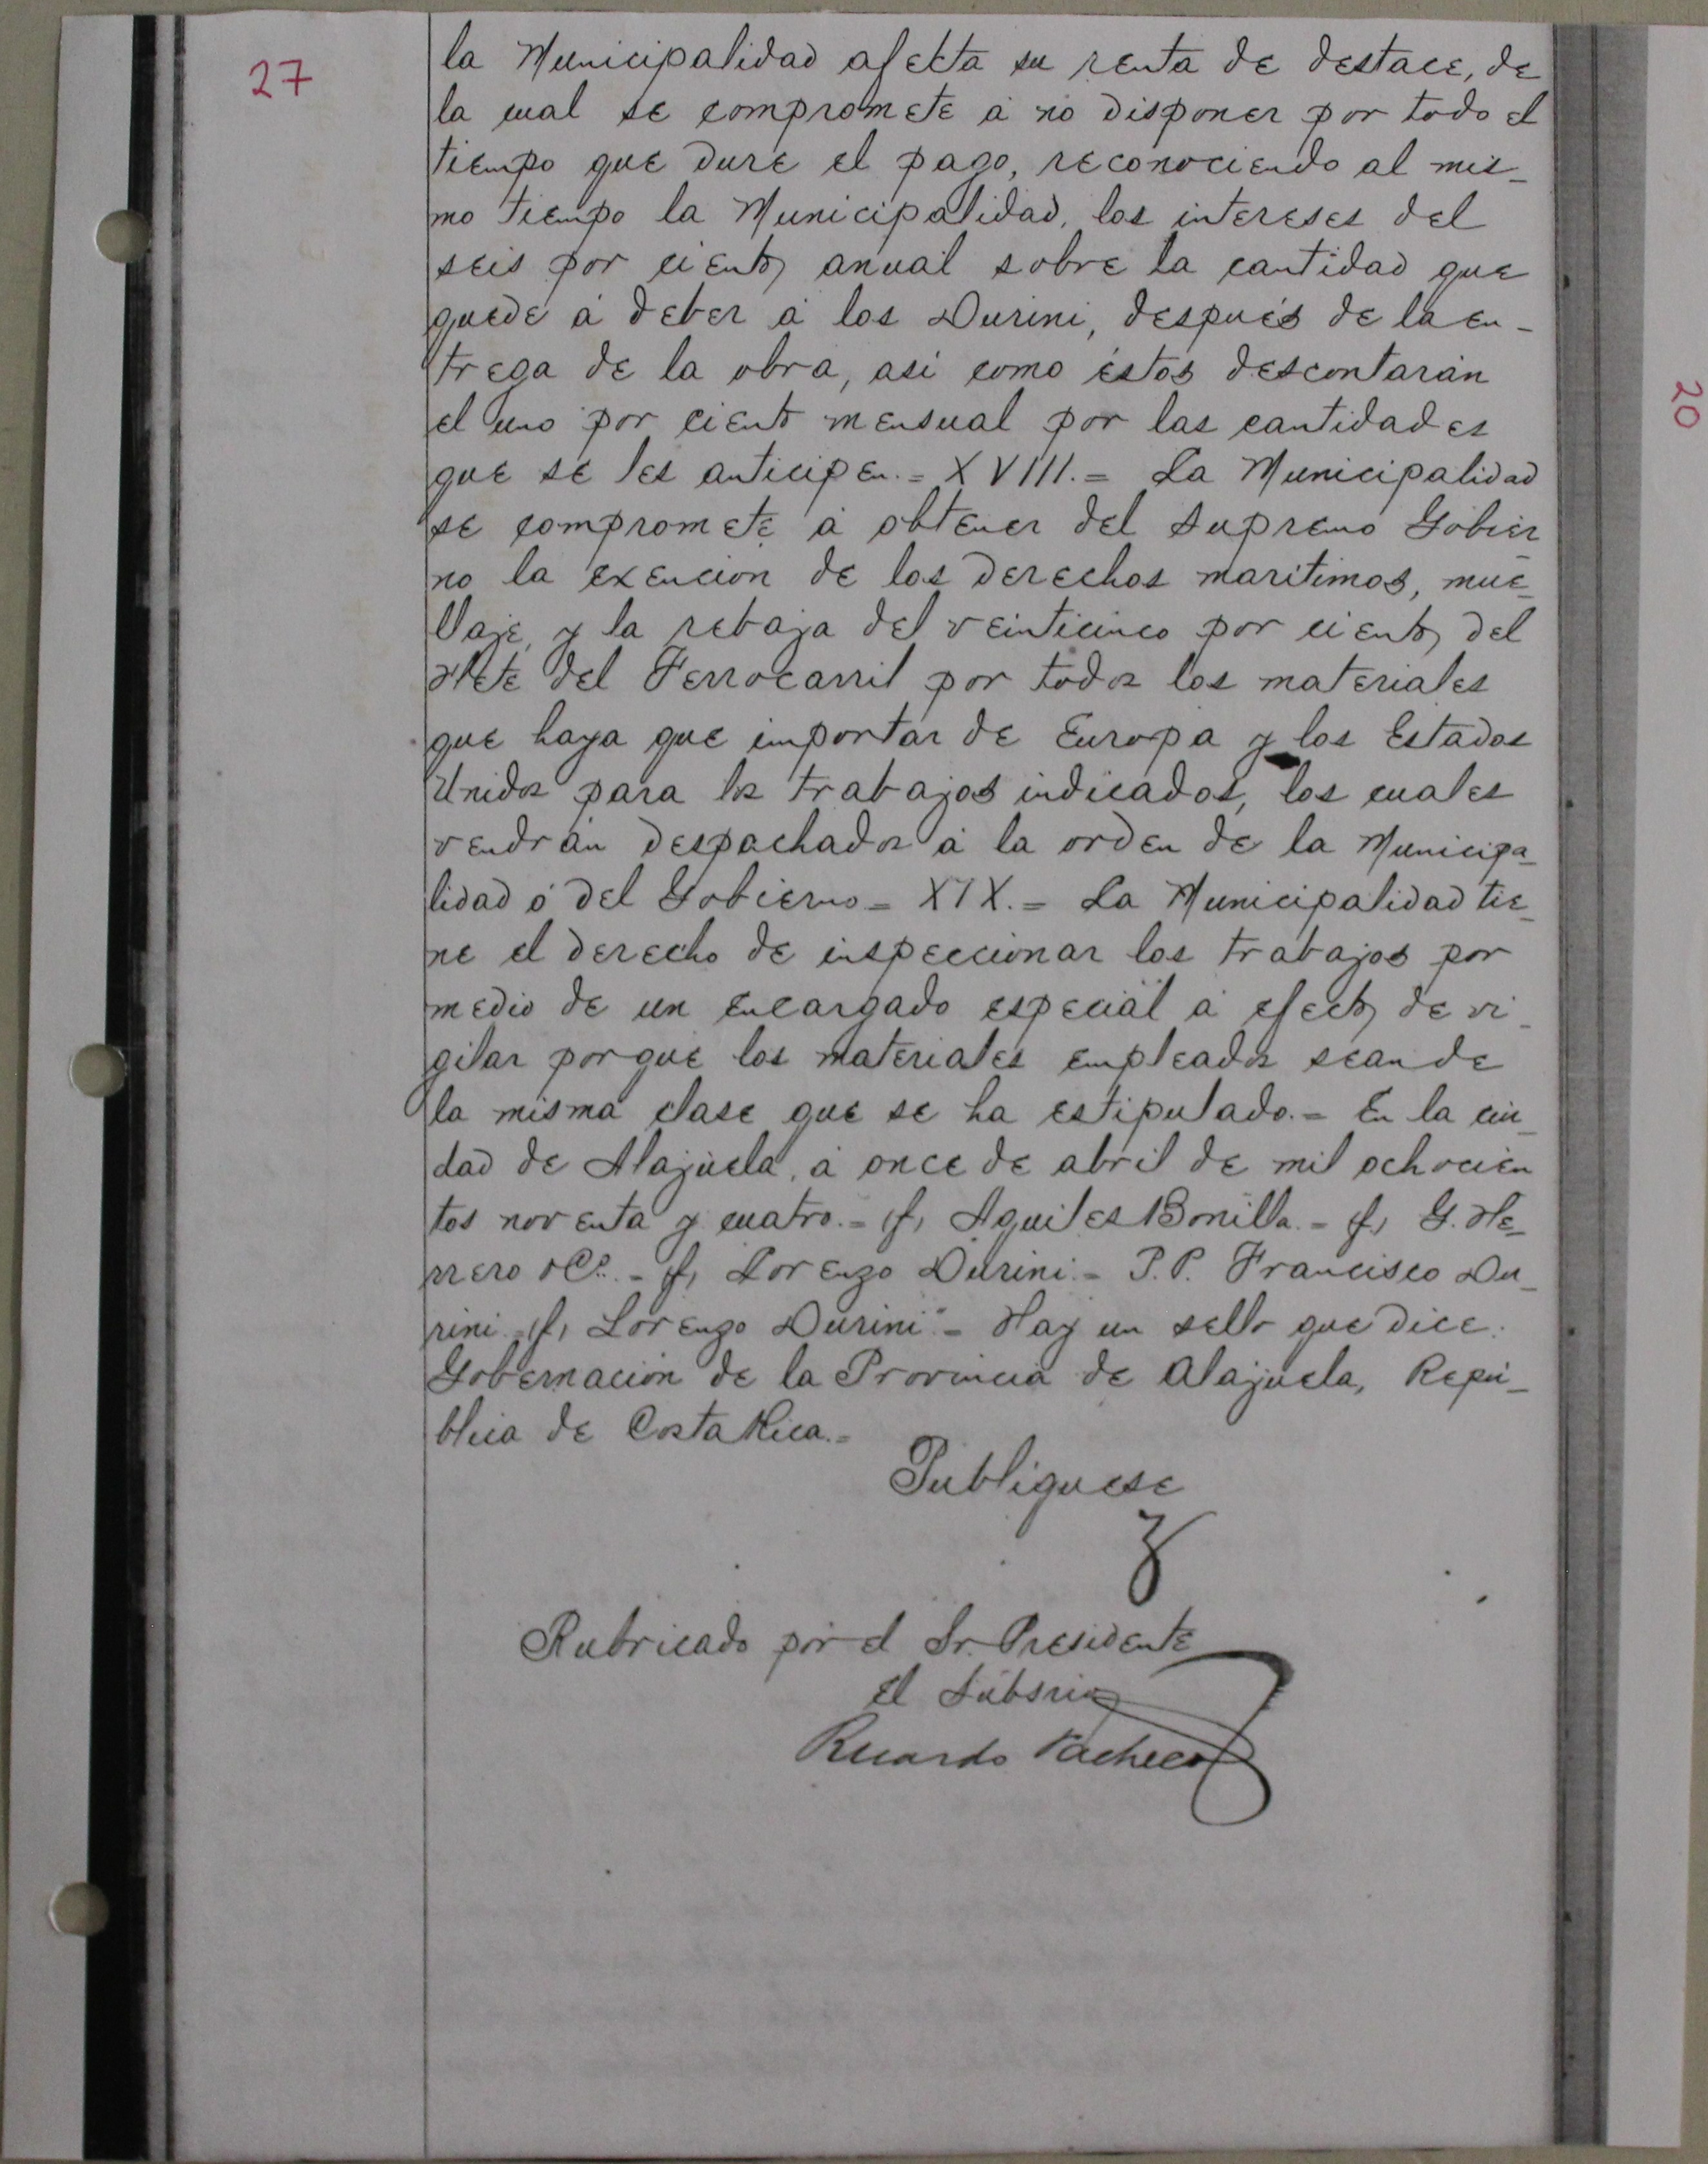 27
la Municipalidad afecta su renta de destace, de
la cual se compromete á no disponer por todo el
tiempo que dure el pago, reconociendo al mis-
mo tiempo la Municipalidad, los intereses del
seis por ciento anual sobre la cantidad que
quede á deber á los Durini, después de la en-
trega de la obra, así como éstos descontarán
el uno por ciento mensual por las cantidades
que se les anticipen.= XVIII.= La Municipalidad
se compromete á obtener del Supremo Gobier
no la exención de los derechos marítimos, mue-
llaje, y la rebaja del veinticinco por ciento del
flete del Ferrocarril por todos los materiales
que haya que importar de Europa y los Estados
Unidos para los trabajos indicados, los cuales
vendrán despachados á la orden de la Municipa-
lidad ó del Gobierno= XIX.= La Municipalidad tie-
ne el derecho de inspeccionar los trabajos por
medio de un encargado especial á efecto de vi-
gilar porque los materiales empleados sean de
la misma clase que se ha estipulado.= En la ciu-
dad de Alajuela, á once de abril de mil ochocien
tos noventa y cuatro.= (f) Aquiles Bonilla.= (f) G. He-
rrero & Cº.= (f) Lorenzo Durini.= P.P. Francisco Du-
rini.=(f) Lorenzo Durini"= Hay un sello que dice:
Gobernación de la Provincia de Alajuela, Repú-
blica de Costa Rica.=
Publíquese
Rubricado por el Sr. Presidente
el Subsrio
Ricardo Pacheco
20